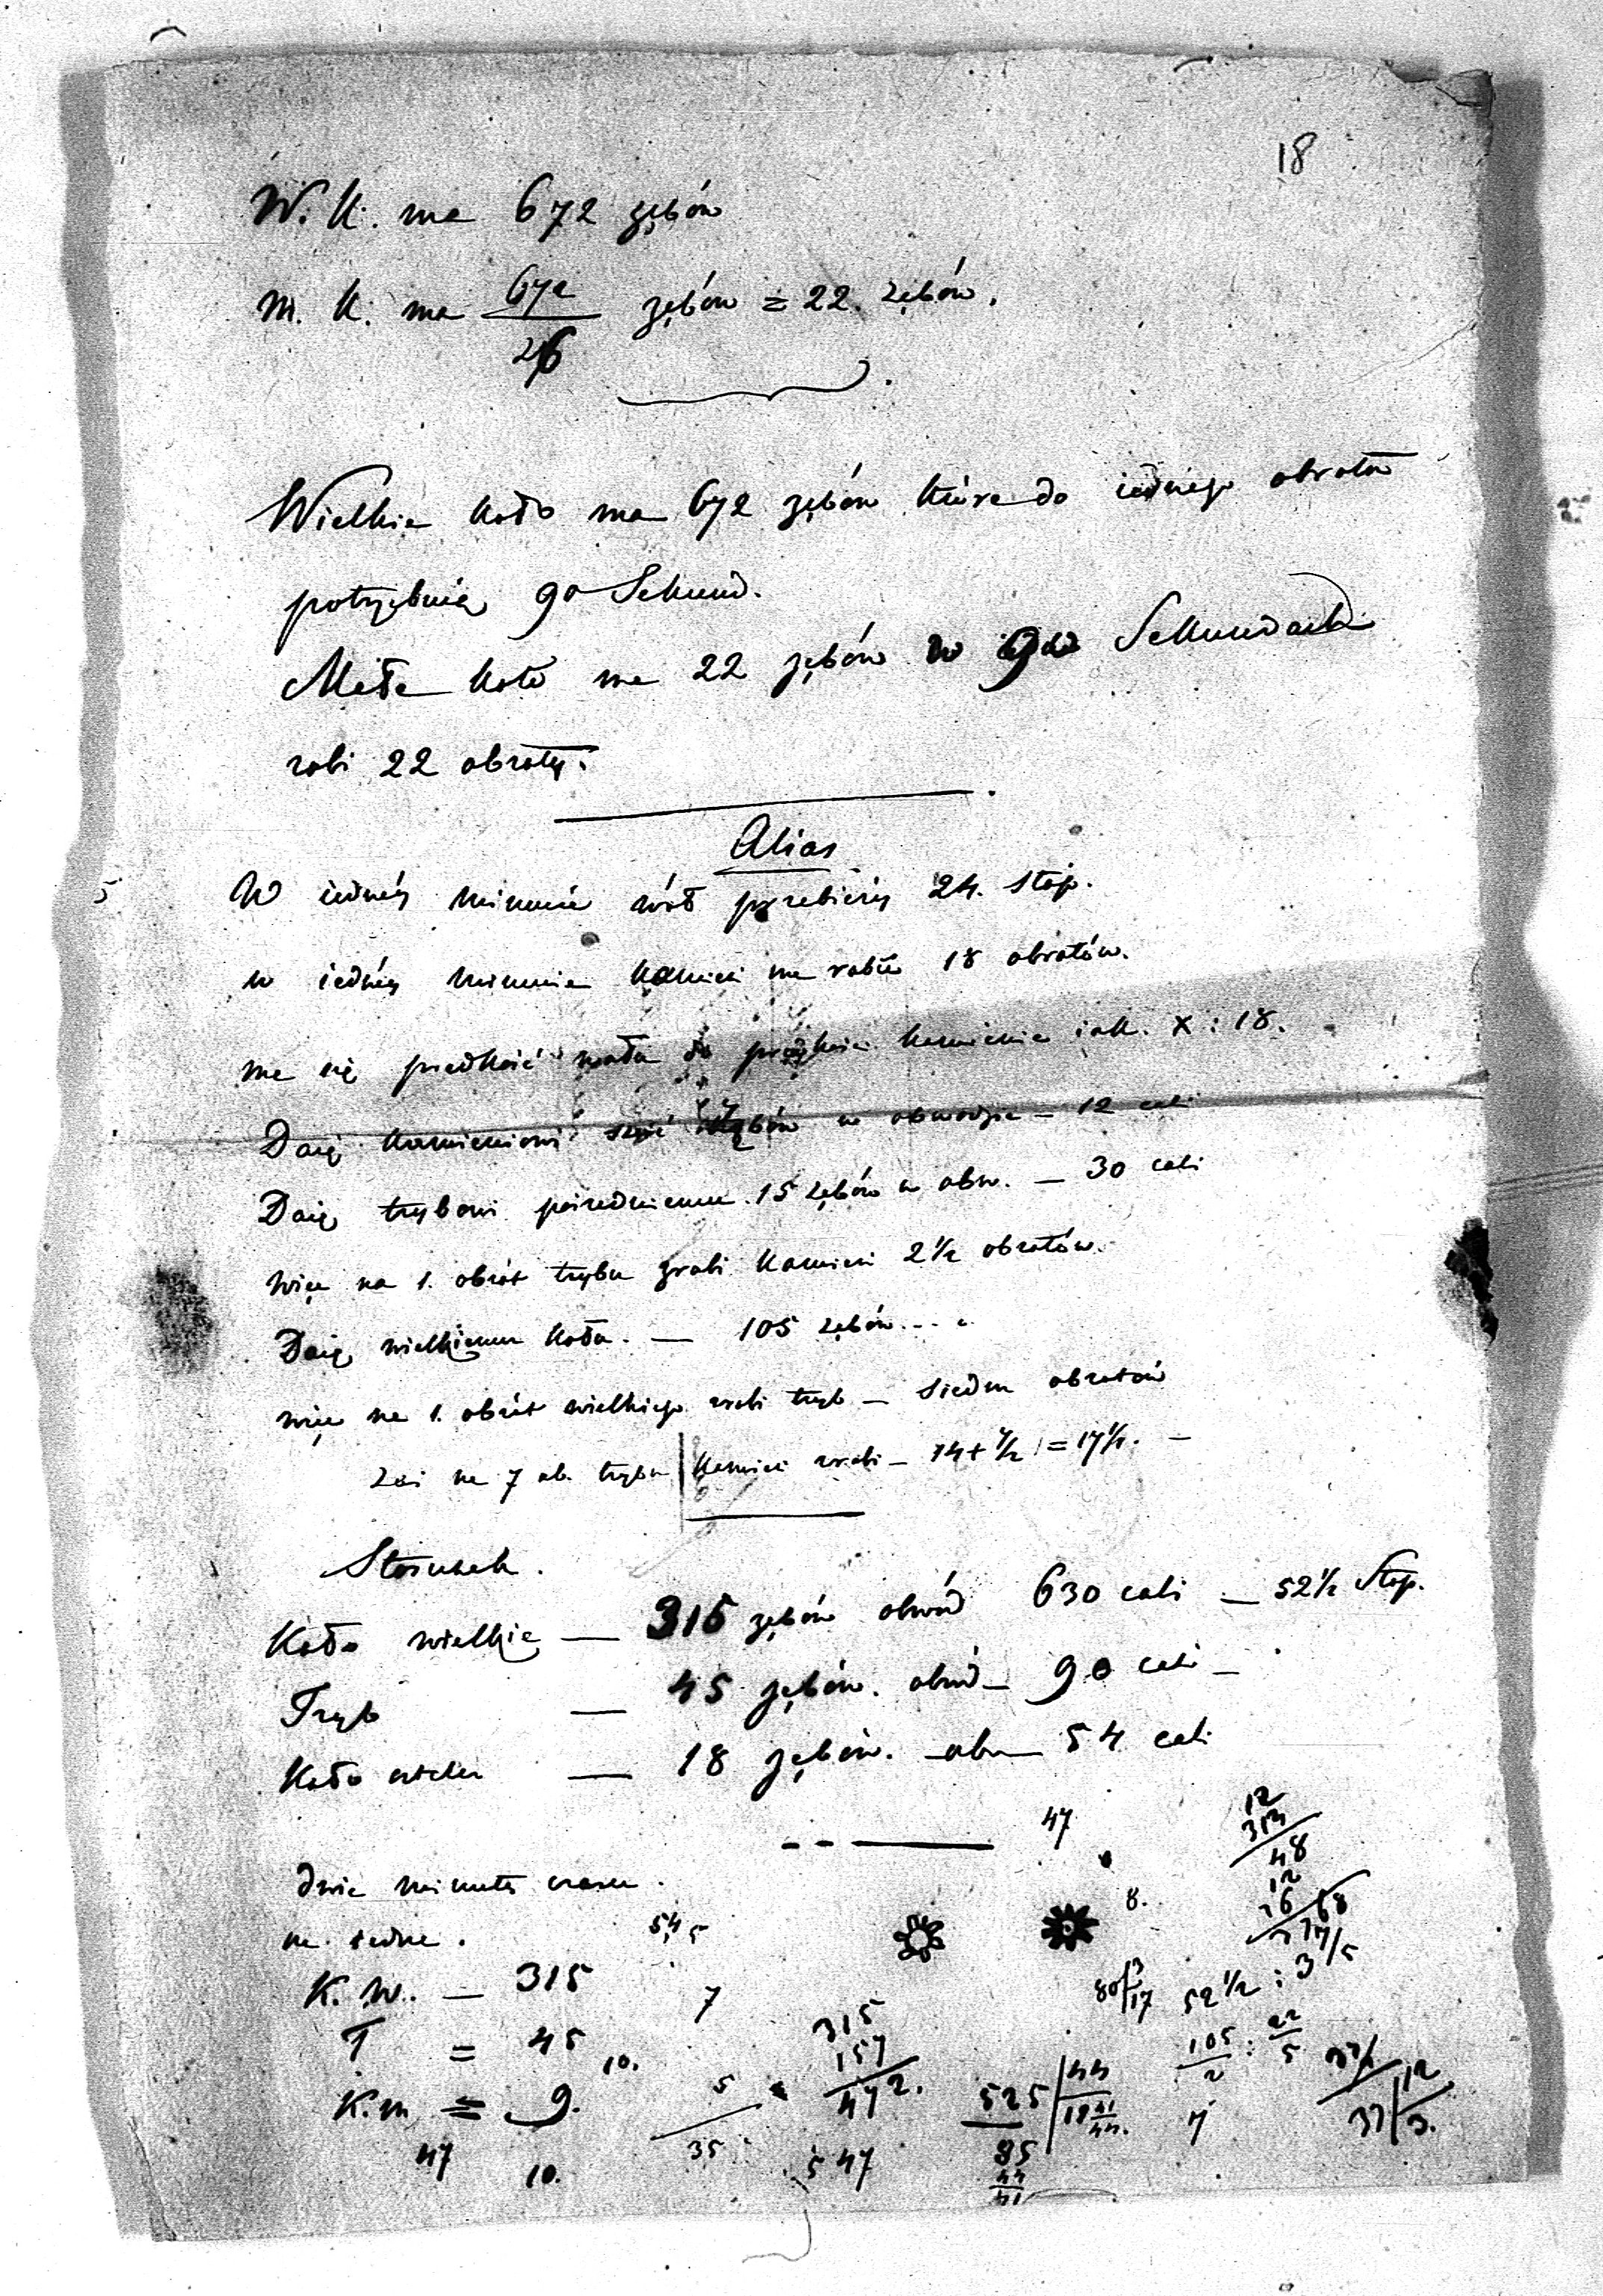 18
W. K. ma 672 zębów
M. K. ma 672/26 zębów = 22 zębów.
Wielkie koło ma 672 zębów które do iednego obrotu
potrzebuią 90 Sekund.
Małe koło ma 22 zębów w 90 Sekundach
robi 22 obroty.
Alias
W iednéy minucie wół przebieży 24. stop.
w iednéy minucie kamień ma robić 18 obrotów.
ma się prędkość woła do prędkości kamienia iak. X : 18.
Daię kamieniowi sześć zębów w obwodzie — 12 cali
Daię trybowi pośredniemu 15 zębów w obw. — 30 cali
więc na 1. obrót trybu zrobi kamień 2 1/2 obrotów.
Daię wielkiemu kołu. — 105 zębów
więc na 1. obrót wielkiego zrobi tryb — siedm obrotów
zaś na 7 ob. trybu kamień zrobi — 14 + 7/2 = 17 1/2. —
Stosunek.
Koło wielkie — 315 zębów obwód 630 cali — 52 1/2 Stop.
Tryb — 45 zębów. obwód — 90 cali —
Koło — 18 zębów. — obw — 54 cali
47
12
48
dwie minuty czasu.
na iedne.
54 5
8.
K. W. — 315
7
52 1/2 : 3/5
T = 45
10.
315
157
472.
105/2 : 22/5
K. m = 9.
5
35
525 44
95
44
41
7
37 3.
47
10.
547